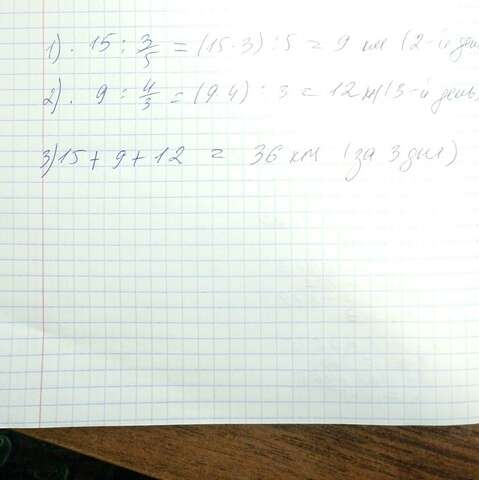 1). 15 : 3/5 = (15·3) : 5 = 9 км (2-й день
2). 9 : 4/3 = (9·4) : 3 = 12 км (3-й день)
3) 15 + 9 + 12 = 36 км (за 3 дня)